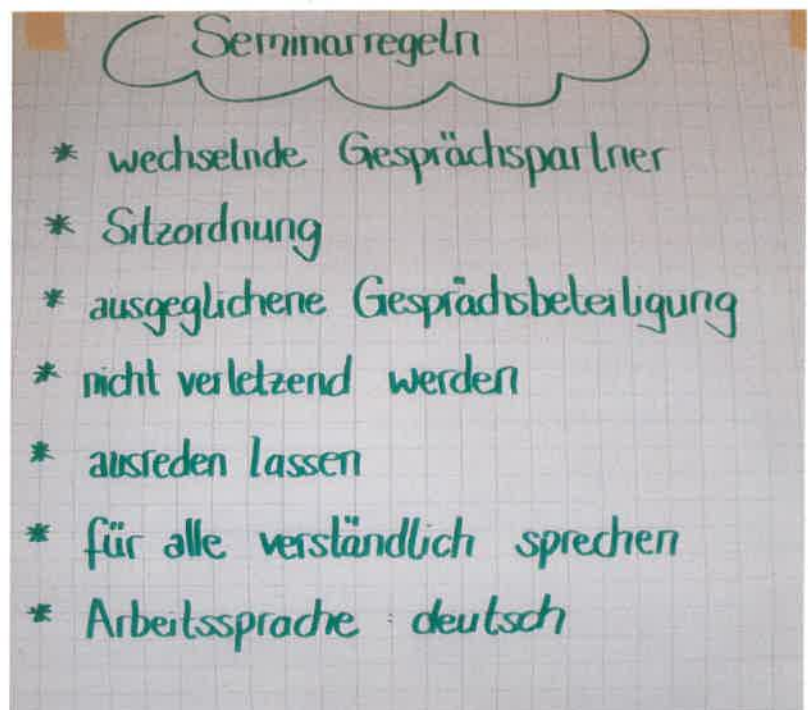 Seminarregeln
* wechselnde Gesprächspartner
* Sitzordnung
* ausgeglichene Gesprächsbeteiligung
* nicht verletzend werden
* ausreden lassen
* für alle verständlich sprechen
* Arbeitssprache : deutsch